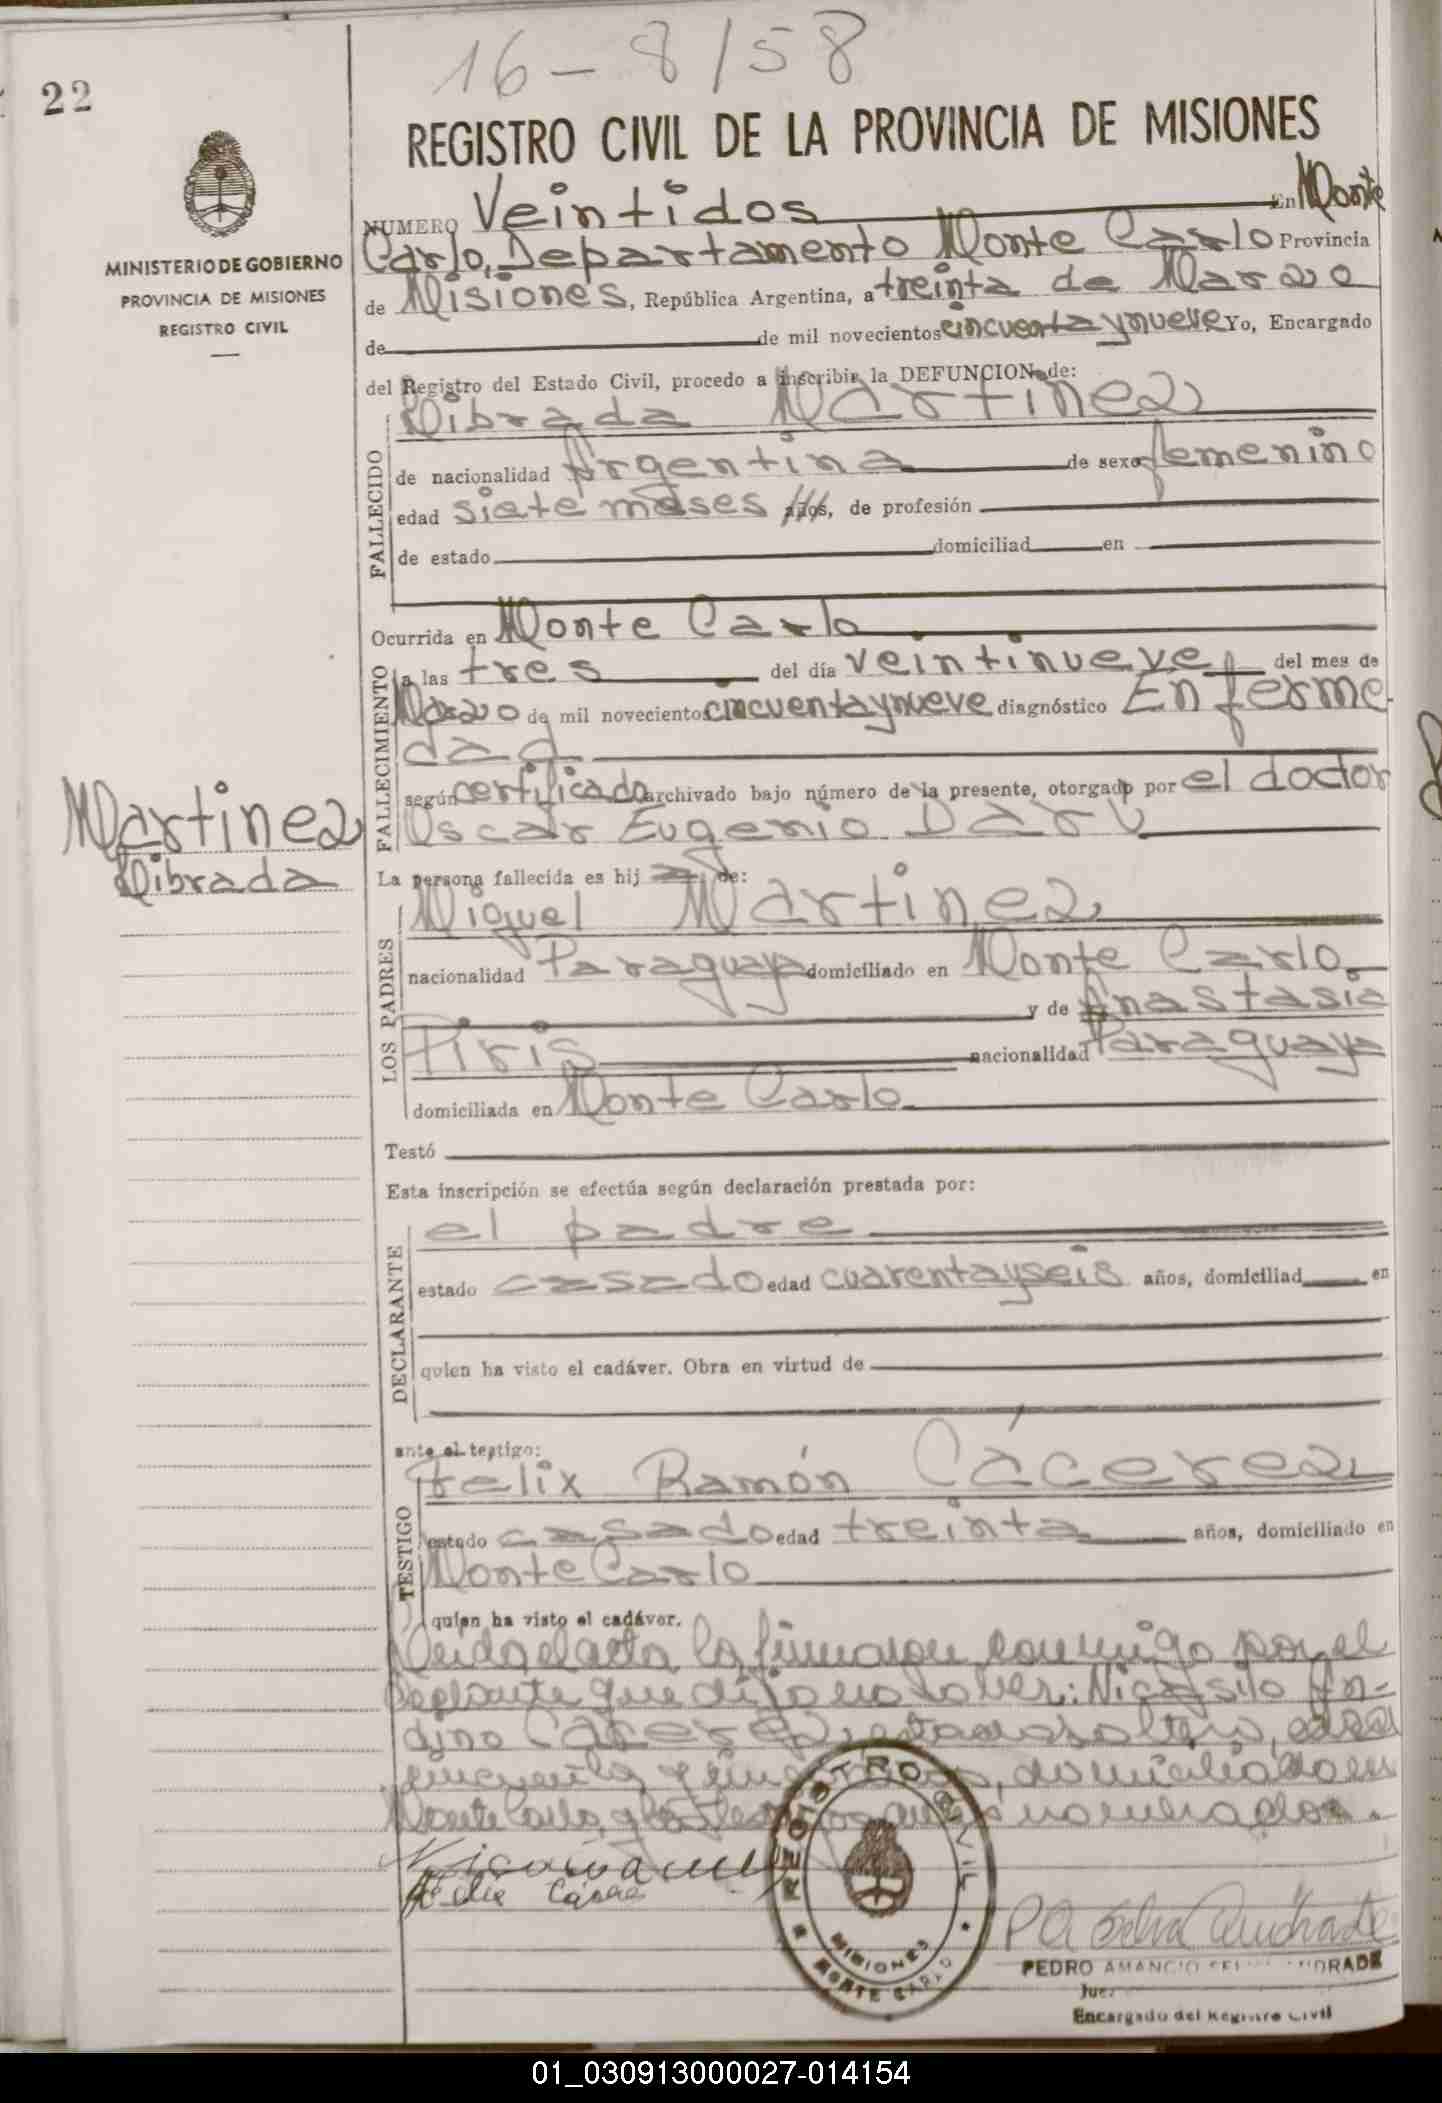 16-8/58
22
REGISTRO CIVIL DE LA PROVINCIA DE MISIONES
MINISTERIO DE GOBIERNO
PROVINCIA DE MISIONES
REGISTRO CIVIL
NUMERO Veintidos En Monte
Carlo, Departamento Monte Carlo Provincia
de Misiones, República Argentina, a treinta de Marzo
de de mil novecientos cincuenta y nueve Yo, Encargado
del Registro del Estado Civil, procedo a inscribir la DEFUNCION de:
FALLECIDO
Librada Martinez
de nacionalidad Argentina de sexo femenino
edad siete meses años, de profesión
de estado domiciliad en
Ocurrida en Monte Carlo
FALLECIMIENTO
a las tres del día veintinueve del mes de
Marzo de mil novecientos cincuenta y nueve diagnóstico Enferme-
dad
según certificado archivado bajo número de la presente, otorgado por el doctor
Oscar Eugenio Darú
Martinez
Librada
La persona fallecida es hij a de:
LOS PADRES
Miguel Martinez
nacionalidad Paraguaya domiciliado en Monte Carlo
y de Anastasia
Piris nacionalidad Paraguaya
domiciliada en Monte Carlo
Testó
Esta inscripción se efectúa según declaración prestada por:
DECLARANTE
el padre
estado casado edad cuarenta y seis años, domiciliad en
quien ha visto el cadáver. Obra en virtud de
ante el testigo:
TESTIGO
Felix Ramón Cácerez
estado casado edad treinta años, domiciliado en
Monte Carlo
quien ha visto el cadáver.
Leida el acta la firmaron conmigo por el
que dijo no saber: An-
dino Cacerez, estado soltero, edad
cincuenta y años, domiciliado en
Monte Carlo, y los antes nombrados.
Felix
REGISTRO CIVIL
MISIONES
MONTE CARLO
PEDRO AMANCIO ANDRADE
Juez
Encargado del Registro Civil
01_030913000027-014154